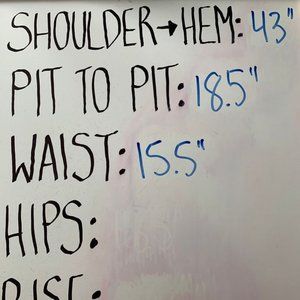 SHOULDER→HEM: 43"
PIT TO PIT: 18.5"
WAIST: 15.5"
HIPS:
RISE: